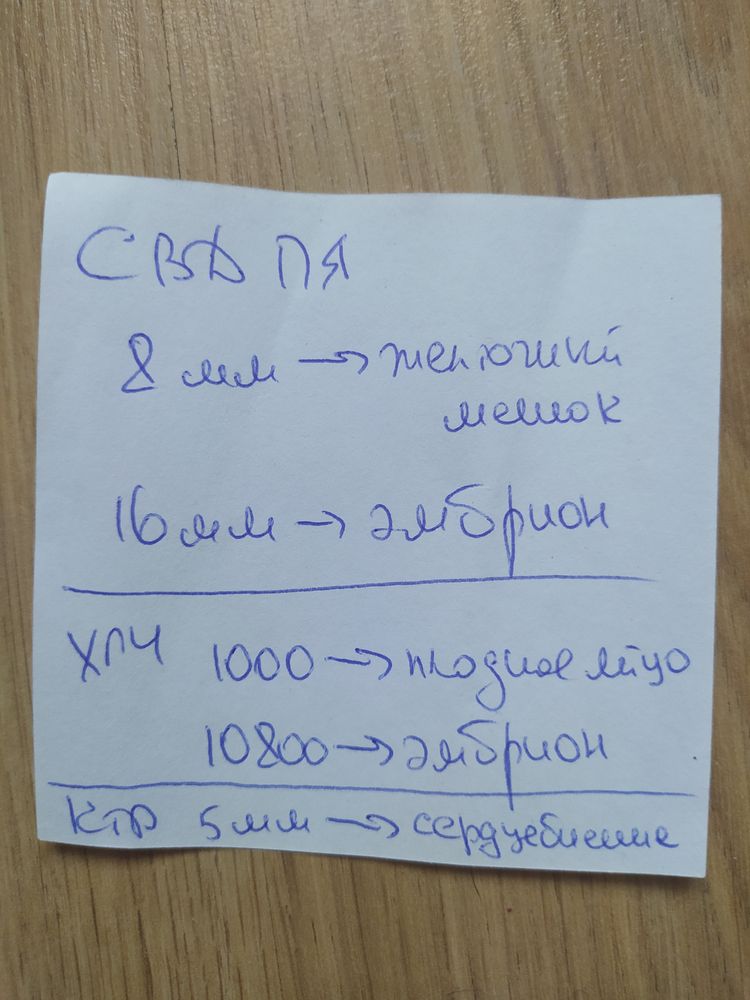 СВД ПЯ
8 мм → желточный
мешок
16 мм → эмбрион
ХГЧ 1000 → плодное яйцо
10800 → эмбрион
КТР 5 мм → сердцебиение